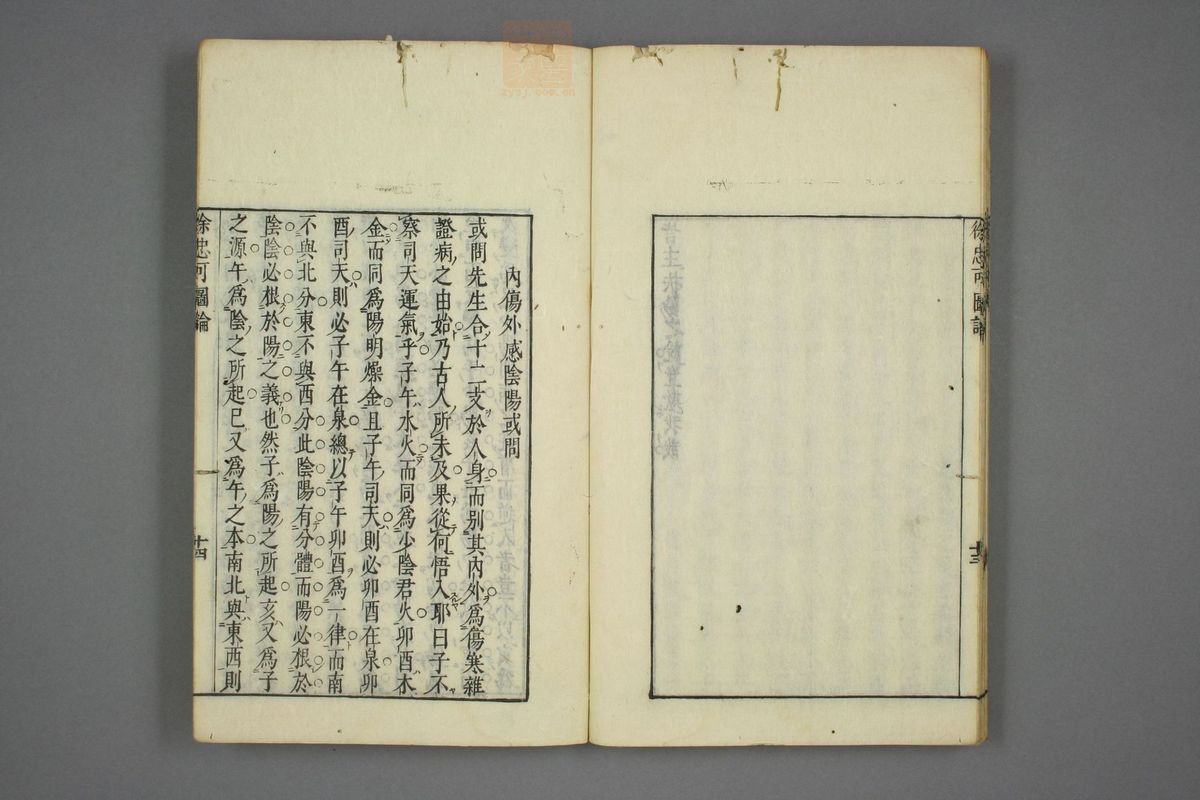 徐忠可圖論
十三
內傷外感陰陽或問
或問先生合十二支於人身而别其內外爲傷寒雜
證病之由始乃古人所未及果從何悟入耶曰子不
察司天運氣乎子午水火而同爲少陰君火卯酉木
金而同爲陽明燥金且子午司天則必卯酉在泉卯
酉司天則必子午在泉總以子午卯酉爲一律而南
不與北分東不與西分此陰陽有分體而陽必根於
陰陰必根於陽之義也然子爲陽之所起亥又爲子
之源午爲陰之所起巳又爲午之本南北與東西則
徐忠可圖論
十四
zysj.com.cn